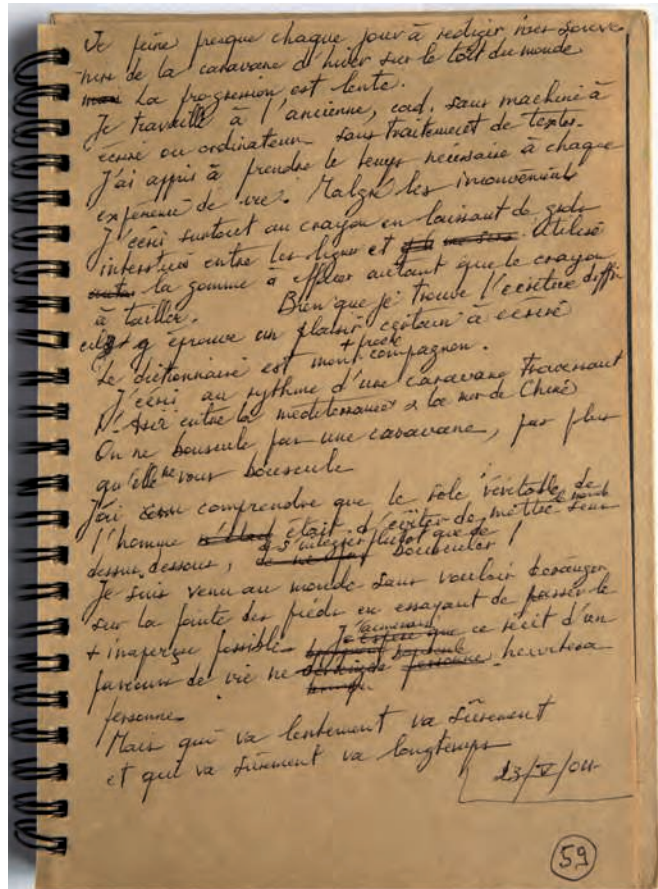 Je peine presque chaque jour à rediger mes souve-
nirs de la caravane d'hiver sur le toit du monde
La progression est lente.
Je travaille à l'ancienne, cad. sans machine à
écrire ou ordinateur sans traitement de textes.
J'ai appris à prendre le temps nécessaire à chaque
expérience de vie. Malgré les inconvénients
J'écris surtout au crayon en laissant de gds
interstices entre les lignes et utilise
la gomme à effacer autant que le crayon
à tailler. Bien que je trouve l'écriture diffi
cile j'éprouve un plaisir certain à écrire
Le dictionnaire est mon + proche compagnon.
J'écris au rythme d'une caravane traversant
l'Asie entre la méditerranée & la mer de Chine
On ne bouscule pas une caravane, pas plus
qu'elle ne vous bouscule
J'ai comprendre que le rôle véritable de
l'homme était d'éviter de mettre le monde sens
dessus dessous, & s'intégrer plutôt que de bousculer !
Je suis venu au monde sans vouloir déranger
sur la pointe des pieds en essayant de passer le
+ inaperçu possible J'aimerais que ce récit d'un
parcours de vie ne heurtera
personne
Mais qui va lentement va sûrement
et qui va sûrement va longtemps
23/V/04
59